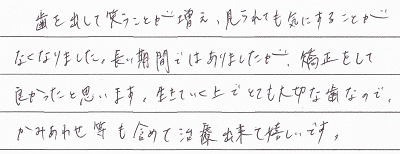 歯を出して笑うことが増え、見られても気にすることが
なくなりました。長い期間ではありましたが、矯正をして
良かったと思います。生きていく上でとても大切な歯なので、
かみあわせ等も含めて治療出来て嬉しいです。